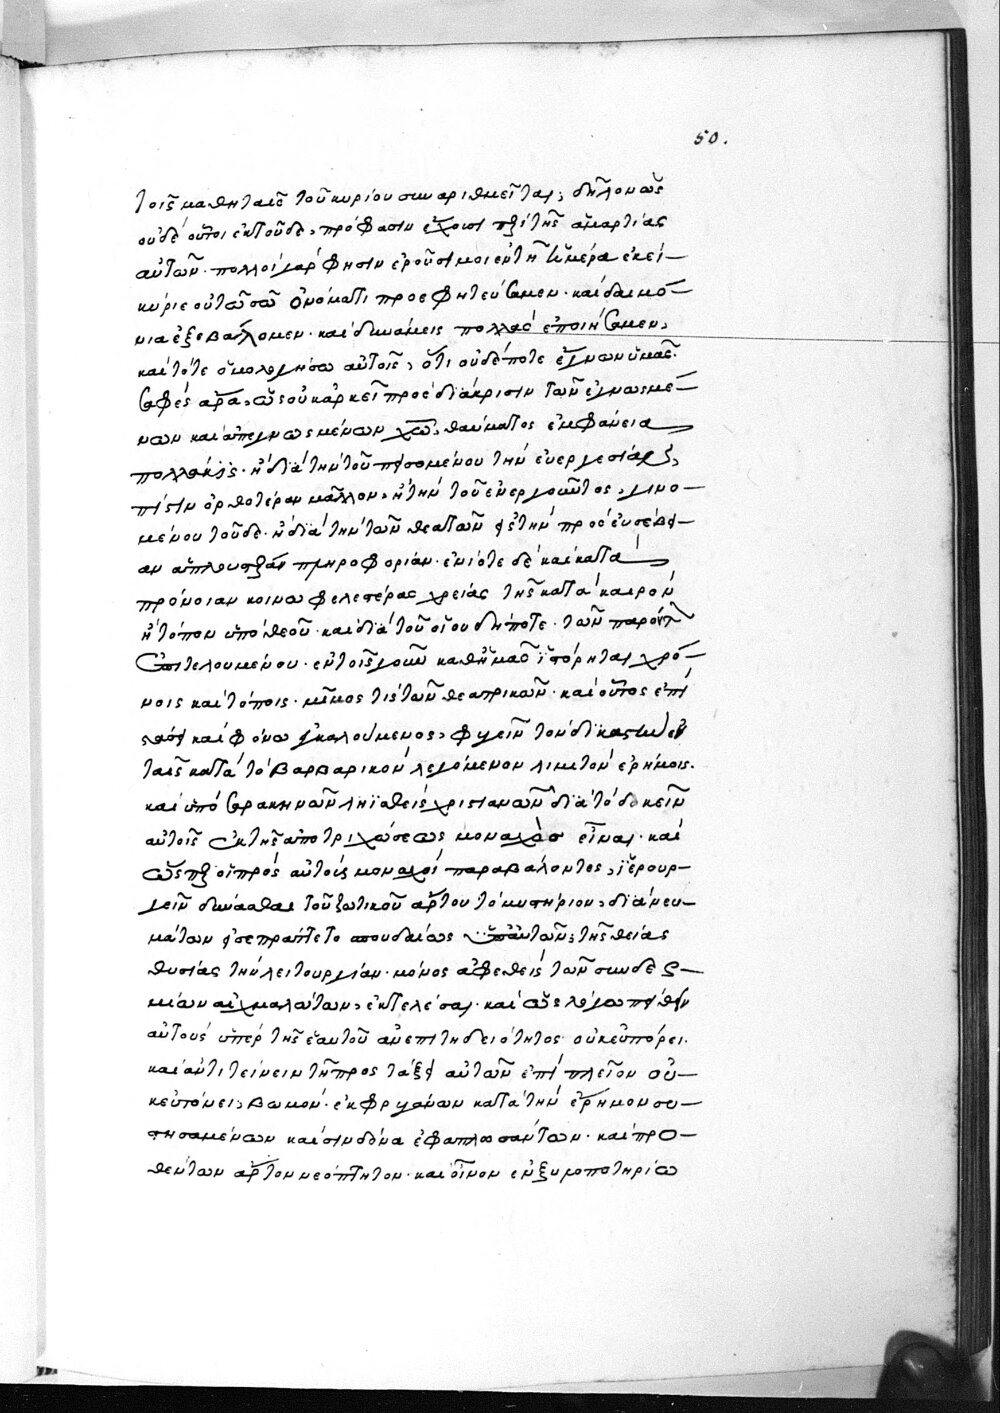 50.
τοῖς μαθηταῖς τοῦ κυρίου συναριθμεῖται; δῆλον ὡς
οὐδὲ οὗτοι ἐκ τοῦδε, πρόφασιν ἔχουσι περὶ τῆς ἁμαρτίας
αὐτῶν· πολλοὶ γάρ φησιν ἐροῦσί μοι ἐν τῇ ἡμέρᾳ ἐκεί-
κύριε οὐ τῷ σῷ ὀνόματι προεφητεύσαμεν· καὶ δαιμό-
νια ἐξεβάλλομεν· καὶ δυνάμεις πολλὰς ἐποιήσαμεν,
καὶ τότε ὁμολογήσω αὐτοῖς, ὅτι οὐδέποτε ἔγνων ὑμᾶς·
σαφὲς ἄρα, ὡς οὐκ ἀρκεῖ πρὸς διάκρισιν τῶν ἐγνωσμέ-
νων καὶ ἀπεγνωσμένων χῶ, θαύματος ἐμφάνεια
πολλάκις· ἢ διὰ τὴν τοῦ πεισομένου τὴν εὐεργεσίαν,
πίστιν ὀρθοτέραν μᾶλλον, ἢ τὴν τοῦ ἐνεργοῦντος, γινο-
μένου τοῦδε· ἢ διὰ τὴν τῶν θεατῶν εἰς τὴν πρὸς εὐσέβει-
αν πληροφορίαν· ἐνίοτε δὲ καὶ κατὰ
πρόνοιαν κοινωφελεστέρας χρείας τῆς κατὰ καιρὸν
ἢ τόπον ὑπὸ θεοῦ· καὶ διὰ τοῦ οἱουδήποτε· τῶν παρόντων
ἐπιτελουμένου· ἐν τοῖς γοῦν καθ' ἡμᾶς ἱστόρηται χρό-
νοις καὶ τόποις· μῖμός τις τῶν θεατρικῶν· καὶ οὗτος ἐπὶ
καὶ φόνῳ ἐγκαλούμενος, φυγεῖν τὸν δικαστὴν ἐν
ταῖς κατὰ τὸ βαρβαρικὸν λεγόμενον λιμιτὸν ἐρήμοις.
καὶ ὑπὸ σαρακηνῶν ληϊσθεὶς χριστιανῶν διὰ τὸ δοκεῖν
αὐτοῖς ἐκ τῆς ἀποτριχώσεως μοναχὸς εἶναι· καὶ
ὥσπερ οἱ πρὸς αὐτοὺς μοναχοὶ παραβάλοντες, ἱερουρ-
γεῖν δύνασθαι τοῦ ζωτικοῦ ἄρτου τὸ μυστήριον, διὰ νευ-
μάτων εἰσεπράττετο σπουδαίως ὑπ' αὐτῶν; τῆς θείας
θυσίας τὴν λειτουργίαν· μόνος ἀφεθεὶς τῶν συνδεσ-
μίων αἰχμαλώτων, ἐκτελέσαι· καὶ ὡς λόγῳ πείθειν
αὐτοὺς ὑπὲρ τῆς ἑαυτοῦ ἀνεπιτηδειότητος οὐκ εὐπόρει·
καὶ ἀντιτείνειν τῇ προστάξει αὐτῶν ἐπὶ πλεῖον οὐ-
κ εὐτόνει, βωμὸν· ἐκ φρυγάνων κατὰ τὴν ἔρημον συ-
στησαμένων καὶ σινδόνα ἐφαπλωσάντων· καὶ προ-
θέντων ἄρτον νεόπτητον· καὶ οἶνον ἐν ξυμοποτηρίῳ